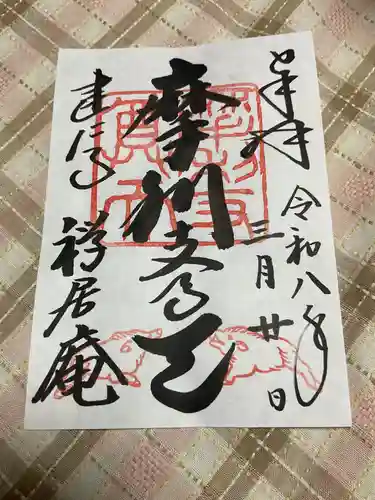 奉拝
令和八年
三月廿日
摩利支尊天
建仁寺
禅居庵